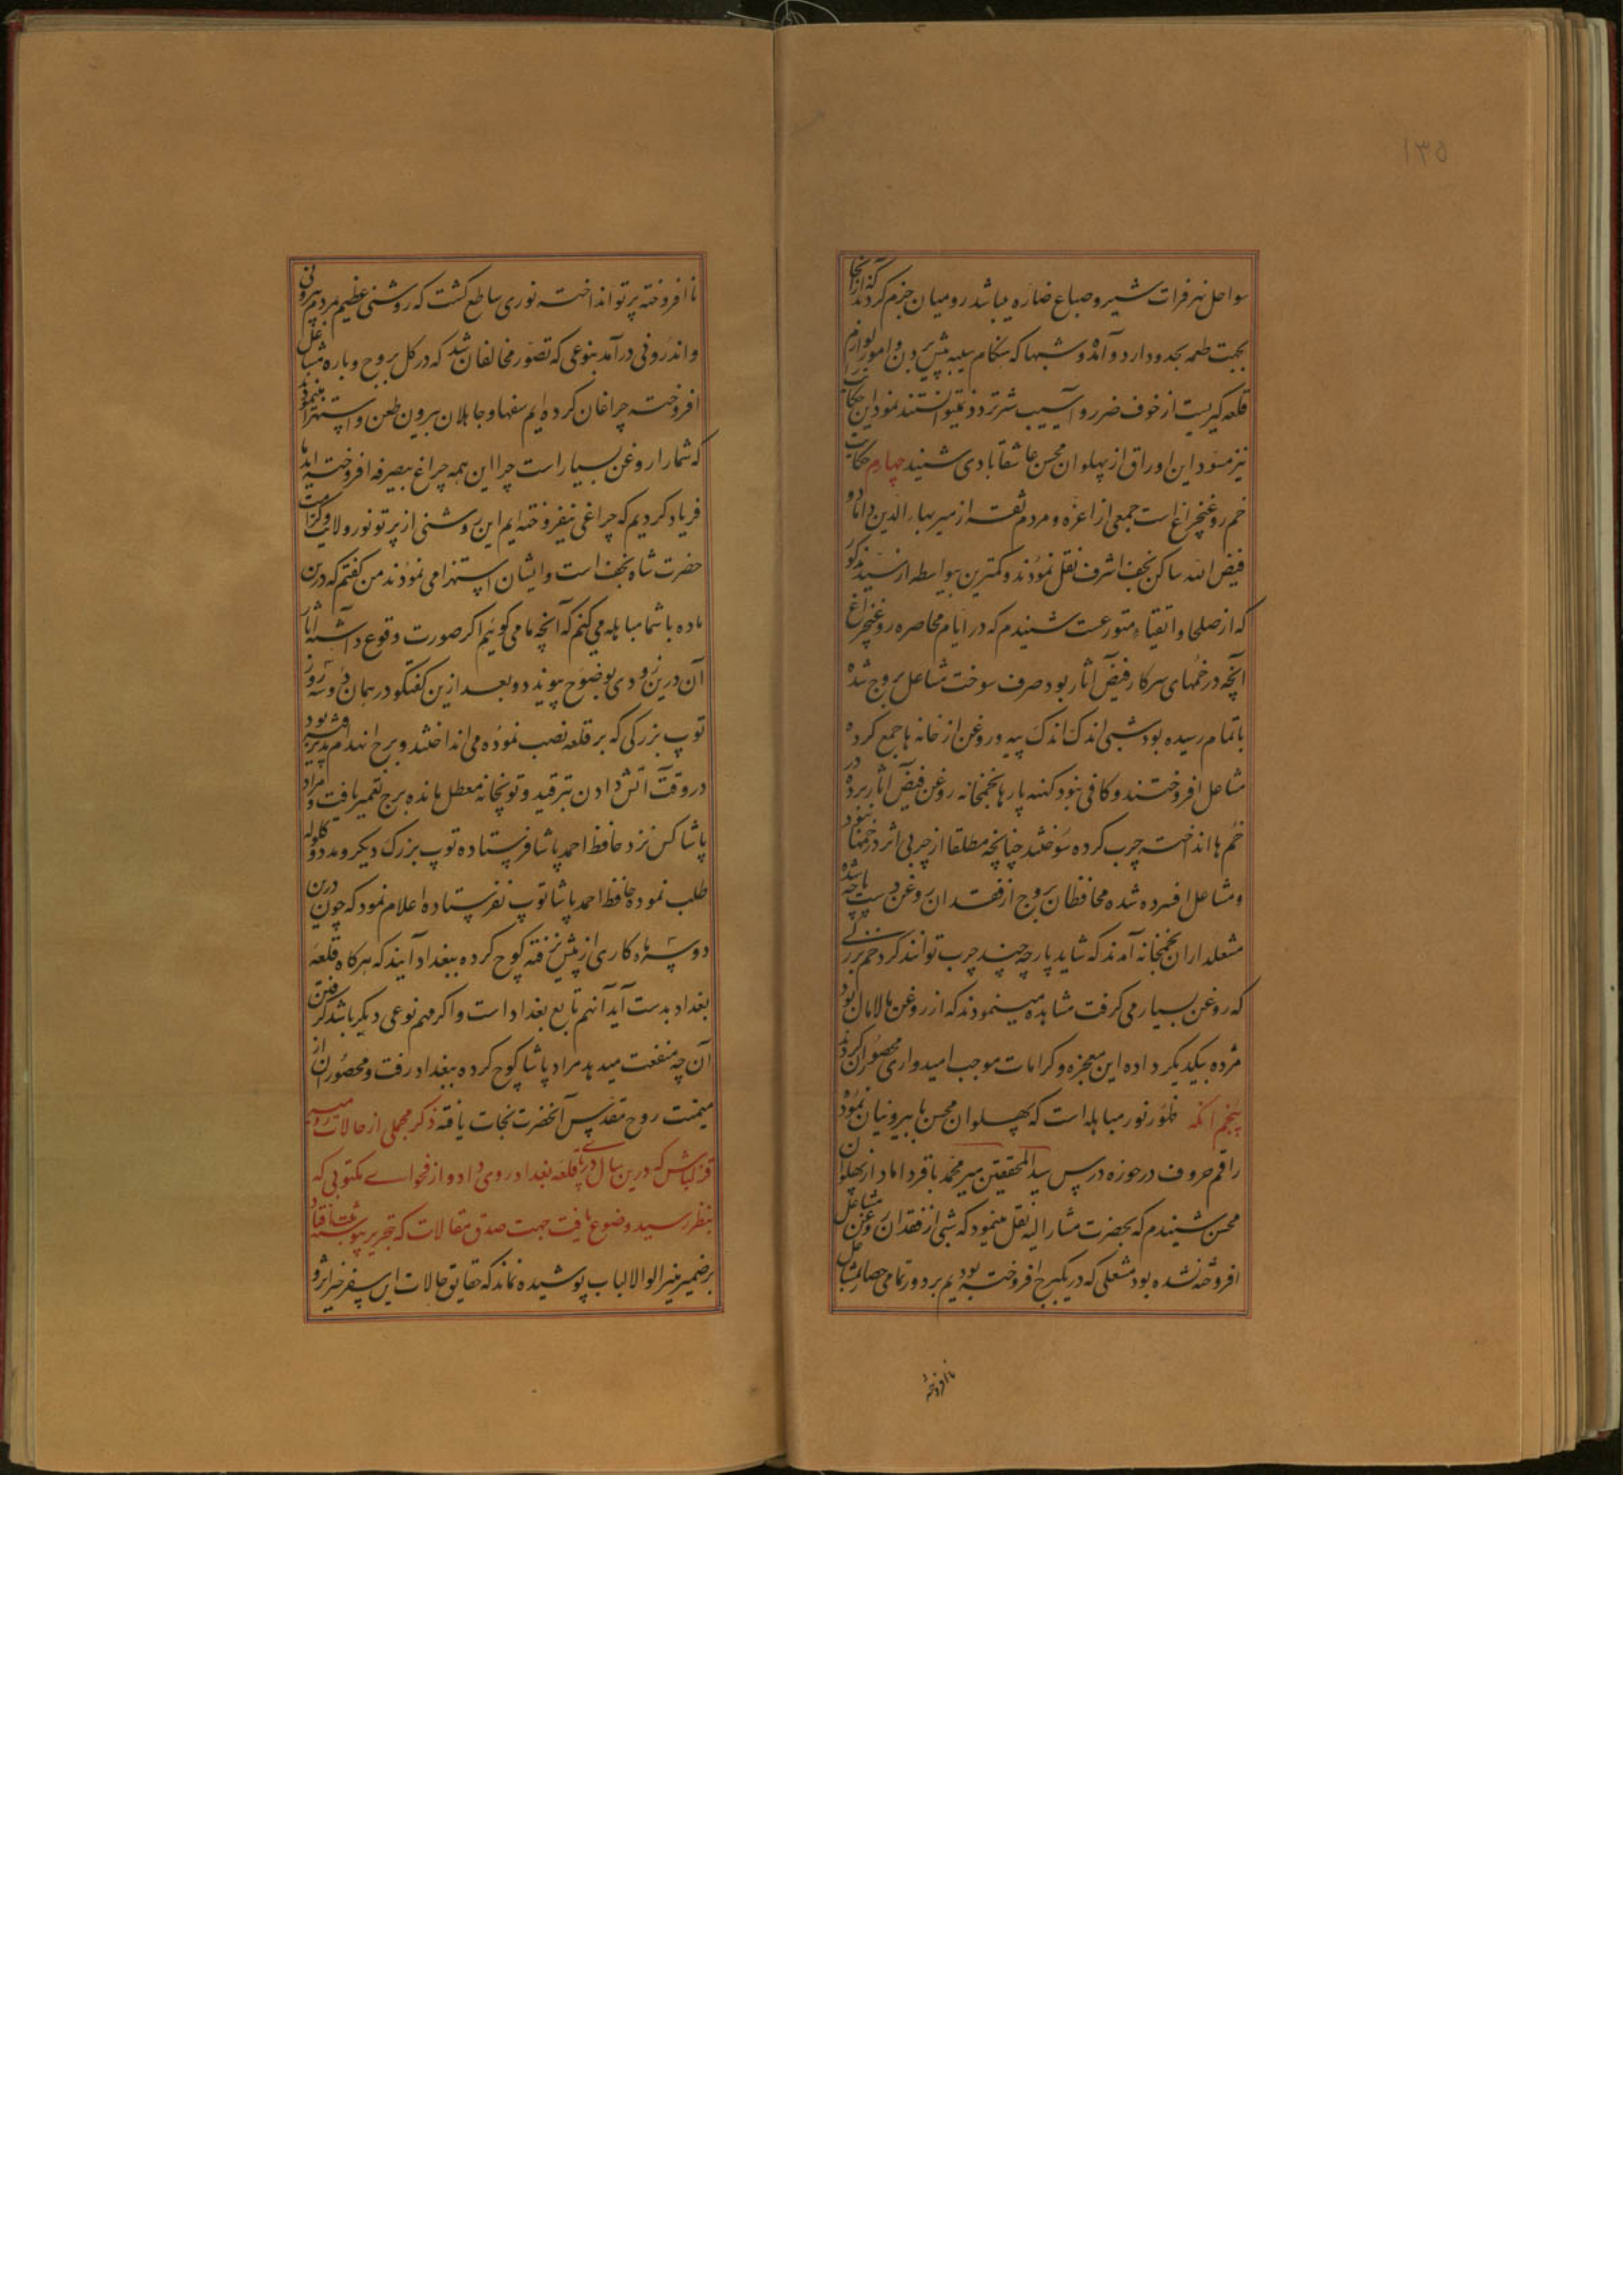 ۱۳۵
سواحل نهر فرات شیر و ضباع ضاره میباشد رومیان جزم کردند که از آنجا
بجهت طعمه بحدود اردو آمده و شبها که هنگام سیبه پیش بردن و امور لوازم
قلعه کیریست از خوف ضرر و آسیب شر تردد نمیتوانستند نمود این حکایت
نیز مسود این اوراق از پهلوان محسن عاشقابادی شنید چهارم حکایت
خم روغنچراغ است جمعی از اعزه و مردم ثقه از میر بهاء الدین داماد
فیض الله ساکن نجف اشرف نقل نمودند و کمترین بیواسطه از سید مذکور
که از صلحا و اتقیاء متورعست شنیدم که در ایام محاصره روغنچراغ
آنچه در خمهای سرکار فیض آثار بود صرف سوخت مشاعل بروج شده
باتمام رسیده بود شبی اندک اندک پیه و روغن از خانه ها جمع کرده
مشاعل افروختند و کافی نبود کهنه پارها بخمخانه روغن فیض آثار برده در
خم ها انداخته چرب کرده سوختند چنانچه مطلقا از چربی اثر در خمها نبود
و مشاعل افسرده شده محافظان بروج از فقدان روغن دست پاچه شده
مشعلداران بخمخانه آمدند که شاید پارچه چند چرب توانند کرد خم بزرگی
که روغن بسیار می کرفت مشاهده مینمودند که از روغن مالامال بود
مژده بیکدیکر داده این معجزه و کرامات موجب امیدواری محصوران کردید
پنجم آنکه ظهور نور مباهله است که پهلوان محسن با بیرونیان نمود
راقم حروف در حوزه درس سید المحققین میر محمد باقر داماد از پهلوان
محسن شنیدم که بحضرت مشار الیه نقل مینمود که شبی از فقدان روغن مشاعل
افروخته نشده بود مشعلی که در یکبرج افروخته بودیم بر دور تمامی حصار مشاعل
نا افروخته
نا افروخته پرتو انداخت نوری ساطع کشت که روشنی عظیم مردم بیرونی
و اندرونی در آمد بنوعی که تصور مخالفان شد که در کل بروج و باره مشاعل
افروخته چراغان کرده ایم سفها و جاهلان بیرون طعن و استهزا مینمودند
که شما را روغن بسیار است چرا این همه چراغ بیصرفه افروخته اید ما
فریاد کردیم که چراغی نیفروخته ایم این روشنی از پرتو نور ولایت و کرامت
حضرت شاه نجف است و ایشان استهزا می نمودند من کفتم که درین
ماده با شما مباهله می کنم که آنچه ما می کوئیم اکر صورت وقوع داشته آثار
آن درین زودی بوضوح پیوندد و بعد ازین کفتکو در همان دو سه روز
توپ بزرکی که بر قلعه نصب نموده می انداختند و برج انهدام پذیر شده بود
در وقت آتش دادن بترقید و توپخانه معطل مانده برج تعمیر یافت و مراد
پاشا کس نزد حافظ احمد پاشا فرستاده توپ بزرک دیکر و مدد و کلوله
طلب نموده حافظ احمد پاشا توپ نفرستاده اعلام نمود که چون درین
دو سه ماه کاری از پیش نرفته کوچ کرده ببغداد آیند که هرکاه قلعه
بغداد بدست آید آنهم تابع بغداد است و اکر مهم نوعی دیکر باشد کرفتن
آن چه منفعت میدهد مراد پاشا کوچ کرده ببغداد رفت و محصوران از
میمنت روح مقدس آنحضرت نجات یافته ذکر مجملی از حالات رومیه
قزلباش که درین سال در پای قلعه بغداد روی داد و از فحوای مکتوبی که
بنظر رسید وضوح یافت جهت صدق مقالات که تحریر پیوسته
بر ضمیر منیر اولوالالباب پوشیده نماند که حقایق حالات این سفر خیر اثر و